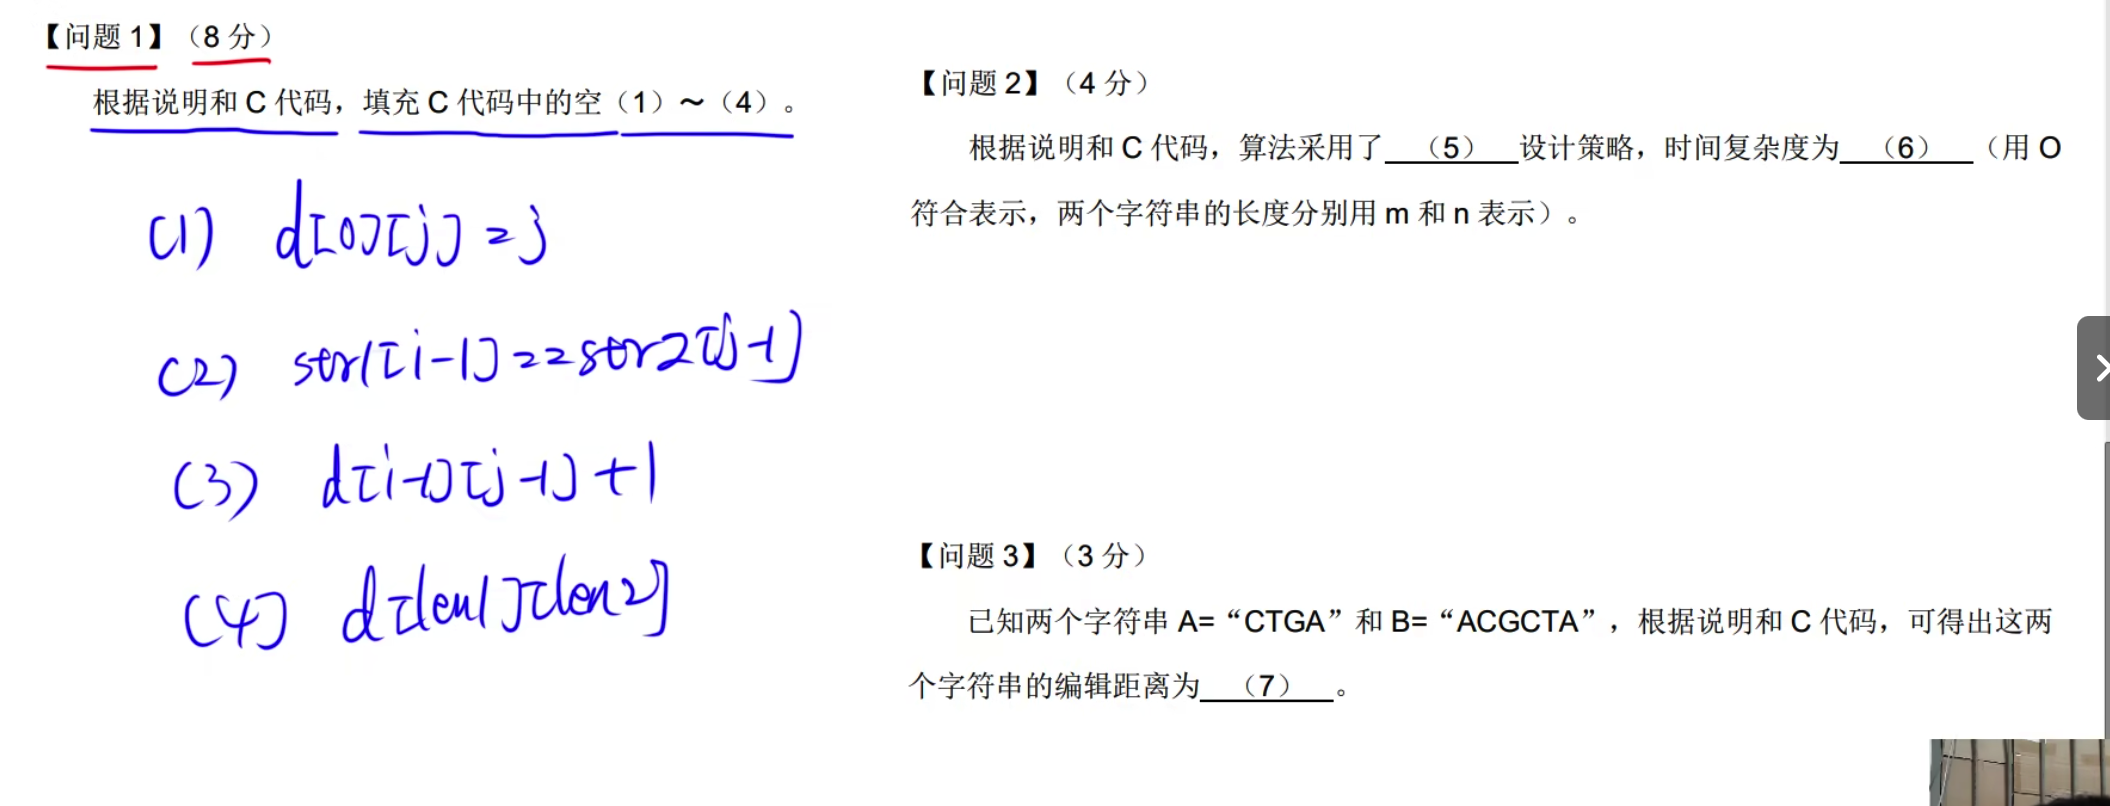 【问题 1】（8 分）
根据说明和 C 代码，填充 C 代码中的空（1）～（4）。
(1) d[0][j] = j
(2) str1[i-1] == str2[j-1]
(3) d[i-1][j-1] + 1
(4) d[len1][len2]
【问题 2】（4 分）
根据说明和 C 代码，算法采用了 （5） 设计策略，时间复杂度为 （6） （用 O
符合表示，两个字符串的长度分别用 m 和 n 表示）。
【问题 3】（3 分）
已知两个字符串 A=“CTGA”和 B=“ACGCTA”，根据说明和 C 代码，可得出这两
个字符串的编辑距离为 （7） 。